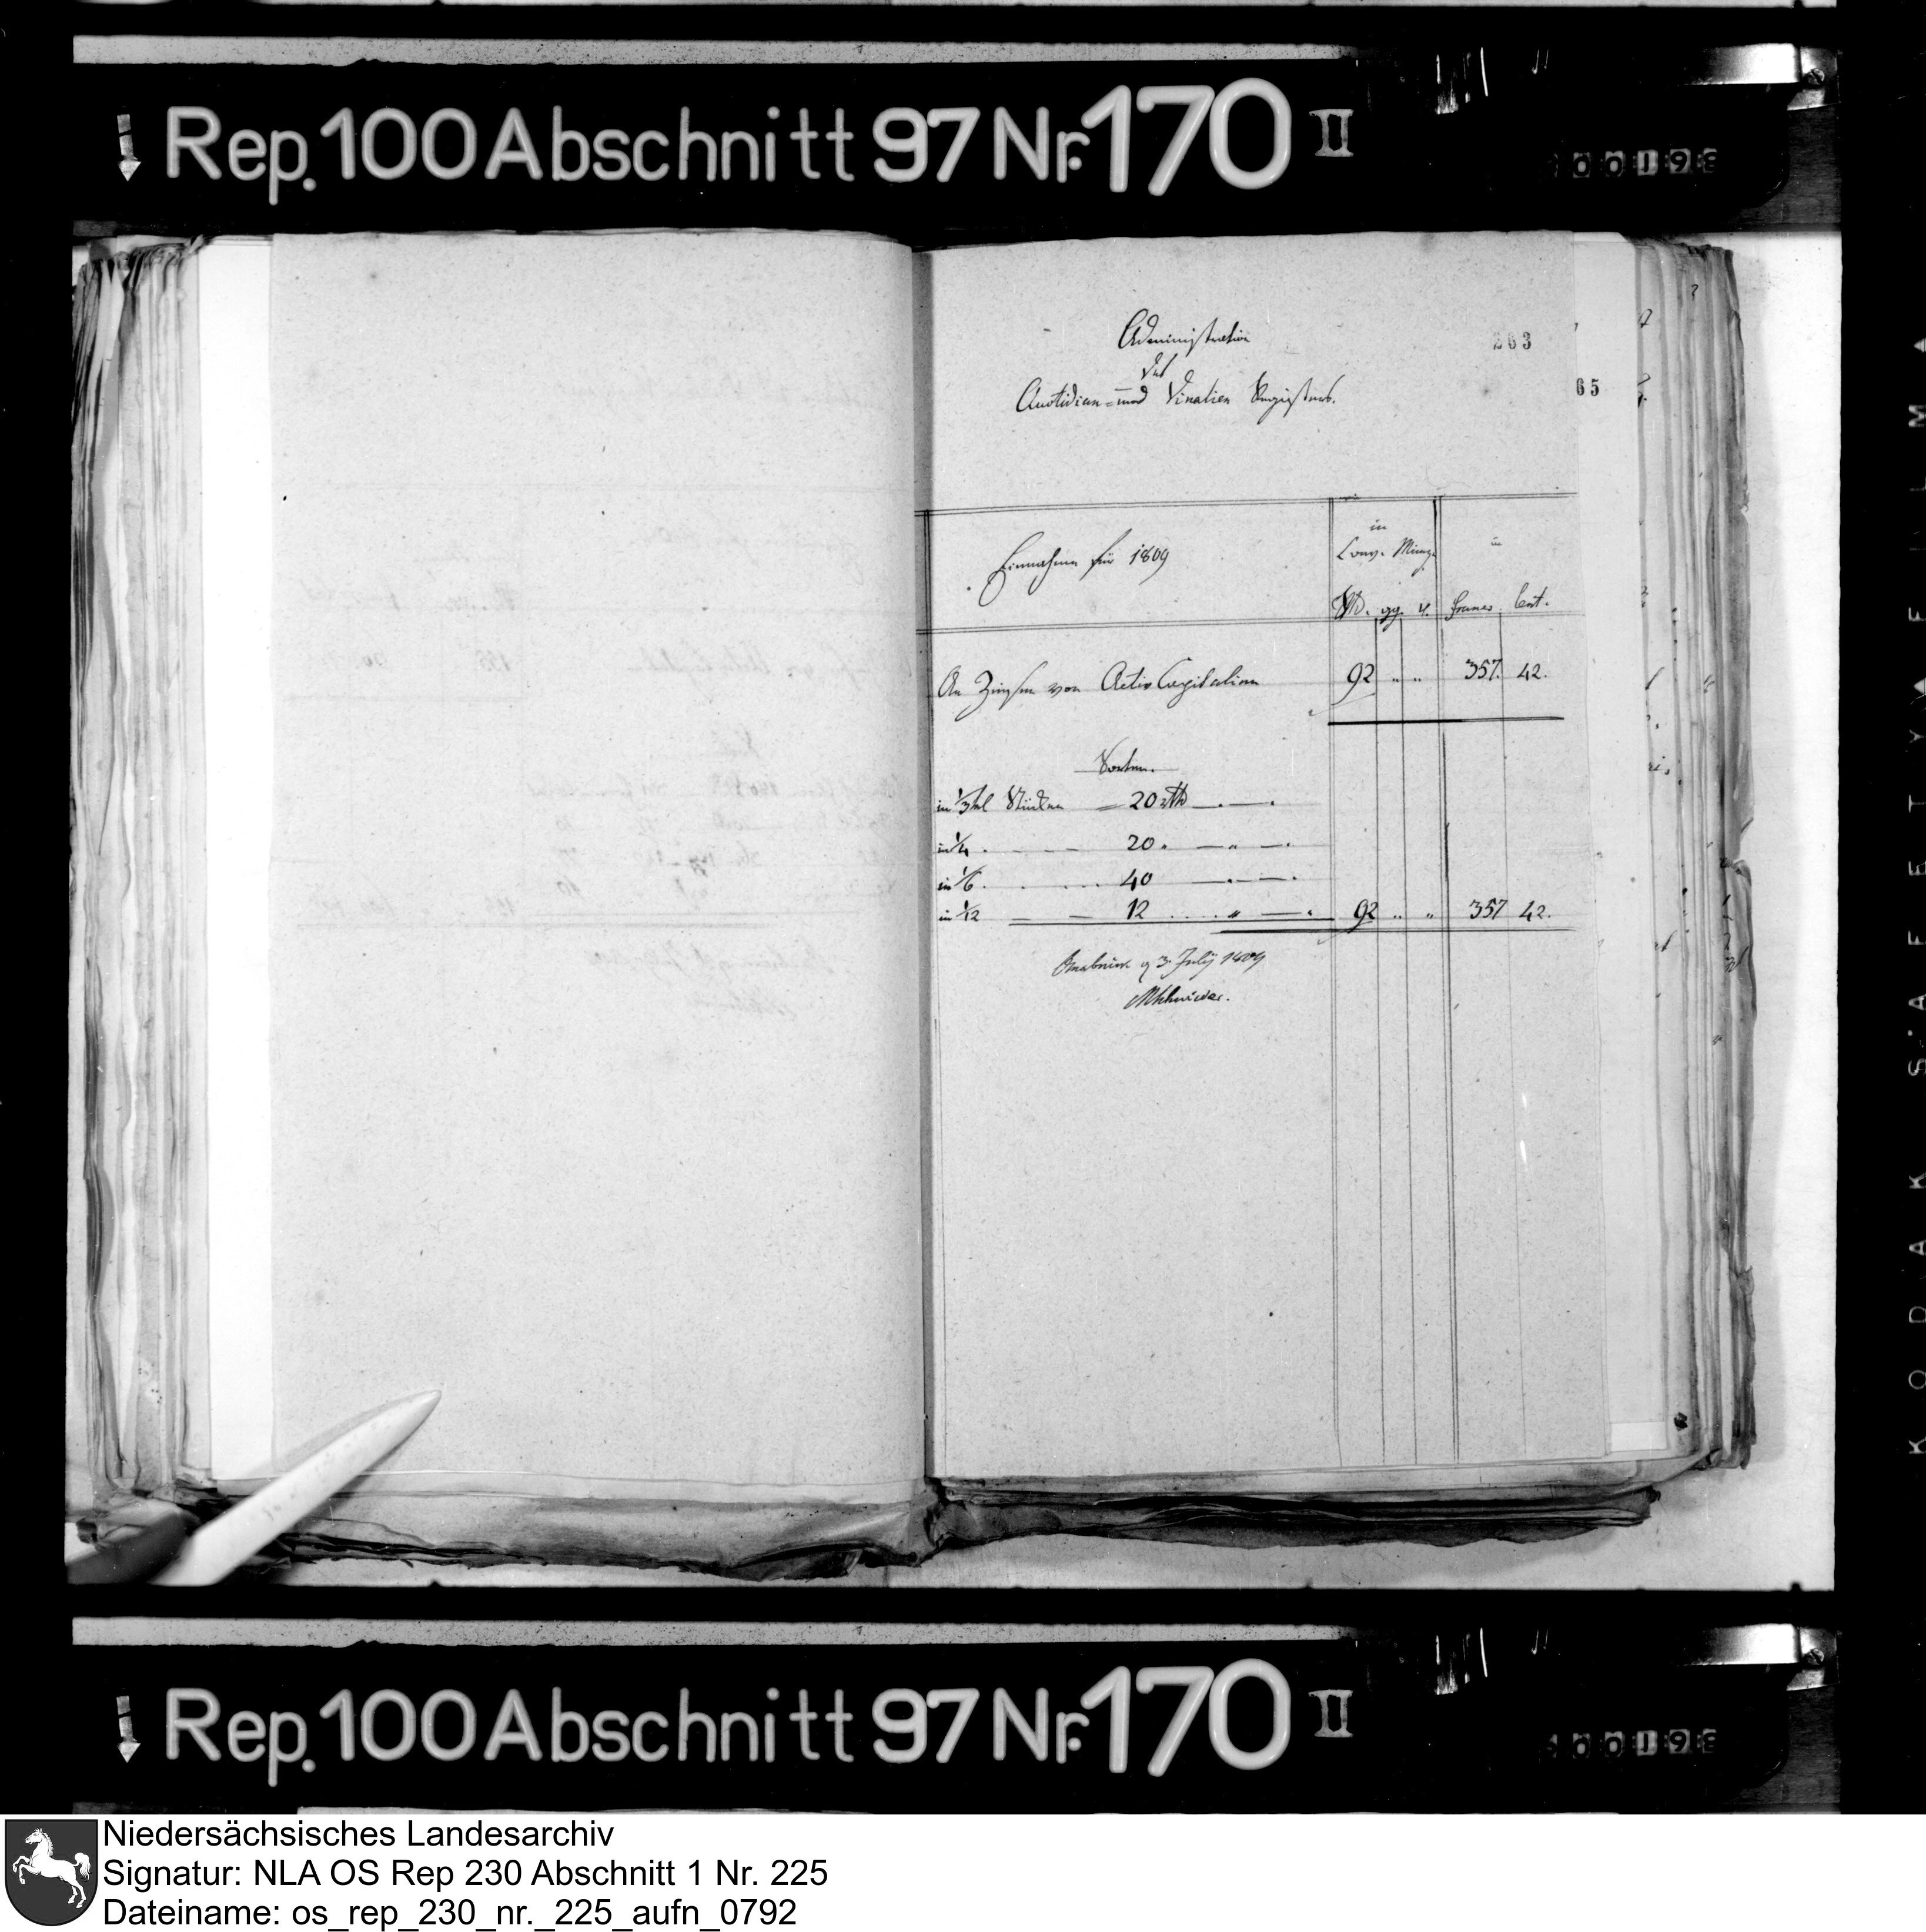 Rep. 100 Abschnitt 97 Nr. 170 II
00193
263
65
Administration
des
Quotidian= und Vinalien Registers.
Einnahme für 1809
in
Conv. Münze
in
Rth. gg. d. francs Cent.
An Zinsen von Activ Capitalien 92 " " 357. 42.
Sorten.
in 1/3tel Stücken — 20 rth — . — .
in 1/4 . — — — 20 . — " — .
in 1/6 . . . . . 40 — . — .
in 1/12 — — 12 . . . . " — . 92 " " 357 42.
Osnabrück d 3 July 1809
KODAK SAFETY FILM
Rep. 100 Abschnitt 97 Nr. 170 II
00193
Niedersächsisches Landesarchiv
Signatur: NLA OS Rep 230 Abschnitt 1 Nr. 225
Dateiname: os_rep_230_nr._225_aufn_0792